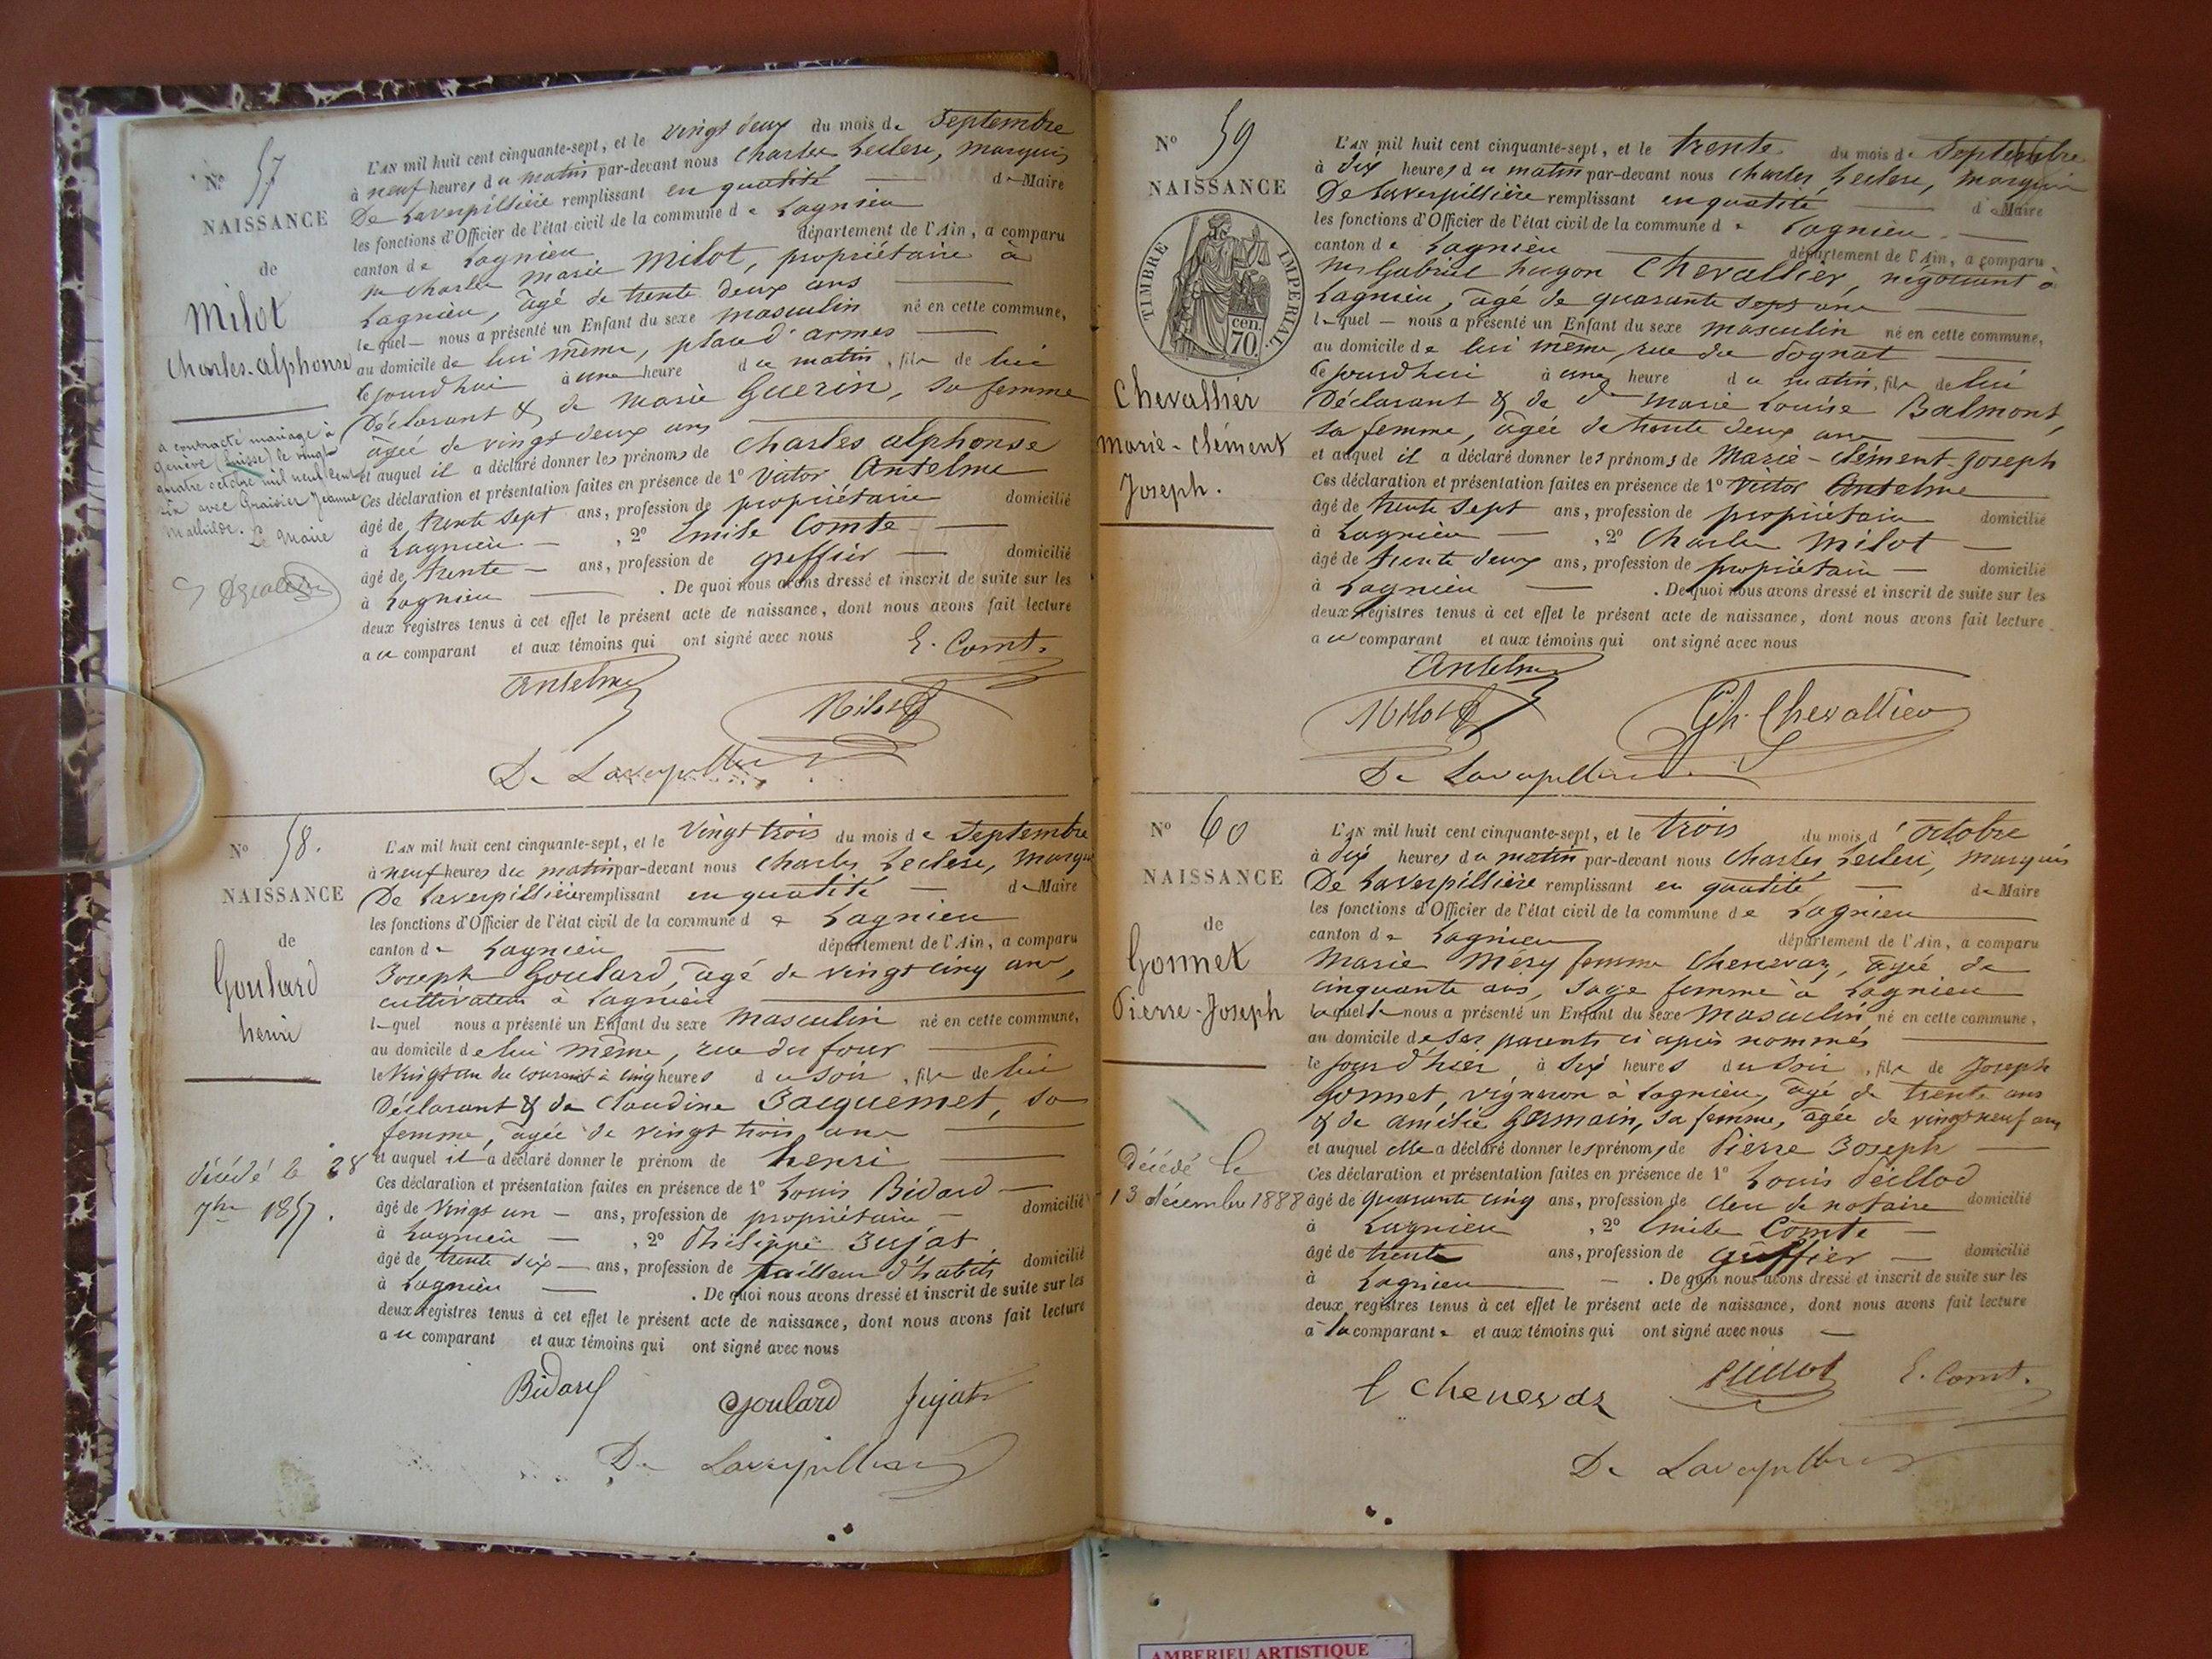 N° 57
NAISSANCE
de
Milot
Charles-alphonse
a contracté mariage à
Genève (Suisse) le vingt
quatre octobre mil neuf cent
six avec Graisier Jeanne
Mathilde. Le Maire
L'AN mil huit cent cinquante-sept, et le vingt deux du mois de Septembre
à neuf heures du matin par-devant nous Charles Leclerc, Marquis
De Laverpillière remplissant en qualité de Maire
les fonctions d'Officier de l'état civil de la commune de Lagnieu
canton de Lagnieu département de l'Ain, a comparu
Mr Charles Marie Milot, propriétaire à
Lagnieu, âgé de trente deux ans
lequel nous a présenté un Enfant du sexe masculin né en cette commune,
au domicile de lui même, place d'armes
ce jourd'hui à une heure du matin, fils de lui
Déclarant & de Marie Guerin, sa femme
âgée de vingt deux ans
et auquel il a déclaré donner les prénoms de Charles alphonse
Ces déclaration et présentation faites en présence de 1° Victor Antelme
âgé de trente sept ans, profession de propriétaire domicilié
à Lagnieu , 2° Emile Comte
âgé de trente ans, profession de greffier domicilié
à Lagnieu . De quoi nous avons dressé et inscrit de suite sur les
deux registres tenus à cet effet le présent acte de naissance, dont nous avons fait lecture
au comparant et aux témoins qui ont signé avec nous
E. Comte
Antelme
Milot
De Laverpillière
N° 58.
NAISSANCE
de
Goulard
henri
décédé le 28
7bre 1857.
L'AN mil huit cent cinquante-sept, et le Vingt trois du mois de Septembre
à neuf heures du matin par-devant nous Charles Leclerc, Marquis
De Laverpillière remplissant en qualité de Maire
les fonctions d'Officier de l'état civil de la commune de Lagnieu
canton de Lagnieu département de l'Ain, a comparu
Joseph Goulard, âgé de vingt cinq ans,
cultivateur à Lagnieu
lequel nous a présenté un Enfant du sexe Masculin né en cette commune,
au domicile de lui même, rue du four
le Vingt un du courant à cinq heures du soir, fils de lui
Déclarant & de Claudine Jacquemet, sa
femme, âgée de vingt trois ans
et auquel il a déclaré donner le prénom de henri
Ces déclaration et présentation faites en présence de 1° Louis Bidard
âgé de Vingt un ans, profession de propriétaire domicilié
à Lagnieu , 2° Philippe Jujat
âgé de trente six ans, profession de tailleur d'habits domicilié
à Lagnieu . De quoi nous avons dressé et inscrit de suite sur les
deux registres tenus à cet effet le présent acte de naissance, dont nous avons fait lecture
au comparant et aux témoins qui ont signé avec nous
Bidard Goulard Jujat
De Laverpillière
N° 59
NAISSANCE
TIMBRE IMPERIAL
cen. 70.
Chevallier
Marie-Clément
Joseph.
L'AN mil huit cent cinquante-sept, et le trente du mois de Septembre
à dix heures du matin par-devant nous Charles Leclerc, Marquis
De Laverpillière remplissant en qualité de Maire
les fonctions d'Officier de l'état civil de la commune de Lagnieu
canton de Lagnieu département de l'Ain, a comparu
Mr Gabriel hugon Chevallier, négociant à
Lagnieu, âgé de quarante sept ans
lequel nous a présenté un Enfant du sexe masculin né en cette commune,
au domicile de lui même, rue du
ce jourd'hui à une heure du matin, fils de lui
Déclarant & de de Marie Louise Balmont,
sa femme, âgée de trente deux ans
et auquel il a déclaré donner les prénoms de Marie-Clément-Joseph
Ces déclaration et présentation faites en présence de 1° Victor Antelme
âgé de trente sept ans, profession de propriétaire domicilié
à Lagnieu , 2° Charles Milot
âgé de trente deux ans, profession de propriétaire domicilié
à Lagnieu . De quoi nous avons dressé et inscrit de suite sur les
deux registres tenus à cet effet le présent acte de naissance, dont nous avons fait lecture
au comparant et aux témoins qui ont signé avec nous
Antelme
Milot Gh. Chevallier
De Laverpillière
N° 60
NAISSANCE
de
Gonnet
Pierre-Joseph
Décédé le
13 décembre 1888
L'AN mil huit cent cinquante-sept, et le trois du mois d'Octobre
à dix heures du matin par-devant nous Charles Leclerc, Marquis
De Laverpillière remplissant en qualité de Maire
les fonctions d'Officier de l'état civil de la commune de Lagnieu
canton de Lagnieu département de l'Ain, a comparu
Marie Méry femme Chenevaz, âgée de
cinquante ans, sage femme à Lagnieu
laquelle nous a présenté un Enfant du sexe Masculin né en cette commune,
au domicile de ses parents ci après nommés
le jour d'hier à six heures du soir, fils de Joseph
Gonnet, vigneron à Lagnieu, âgé de trente ans
& de amélie Germain, sa femme, âgée de vingt neuf ans
et auquel elle a déclaré donner les prénoms de Pierre Joseph
Ces déclaration et présentation faites en présence de 1° Louis Peillod
âgé de quarante cinq ans, profession de clerc de notaire domicilié
à Lagnieu , 2° Emile Comte
âgé de trente ans, profession de greffier domicilié
à Lagnieu . De quoi nous avons dressé et inscrit de suite sur les
deux registres tenus à cet effet le présent acte de naissance, dont nous avons fait lecture
à la comparante et aux témoins qui ont signé avec nous
f Chenevaz Peillod E. Comte
De Laverpillière
AMBERIEU ARTISTIQUE